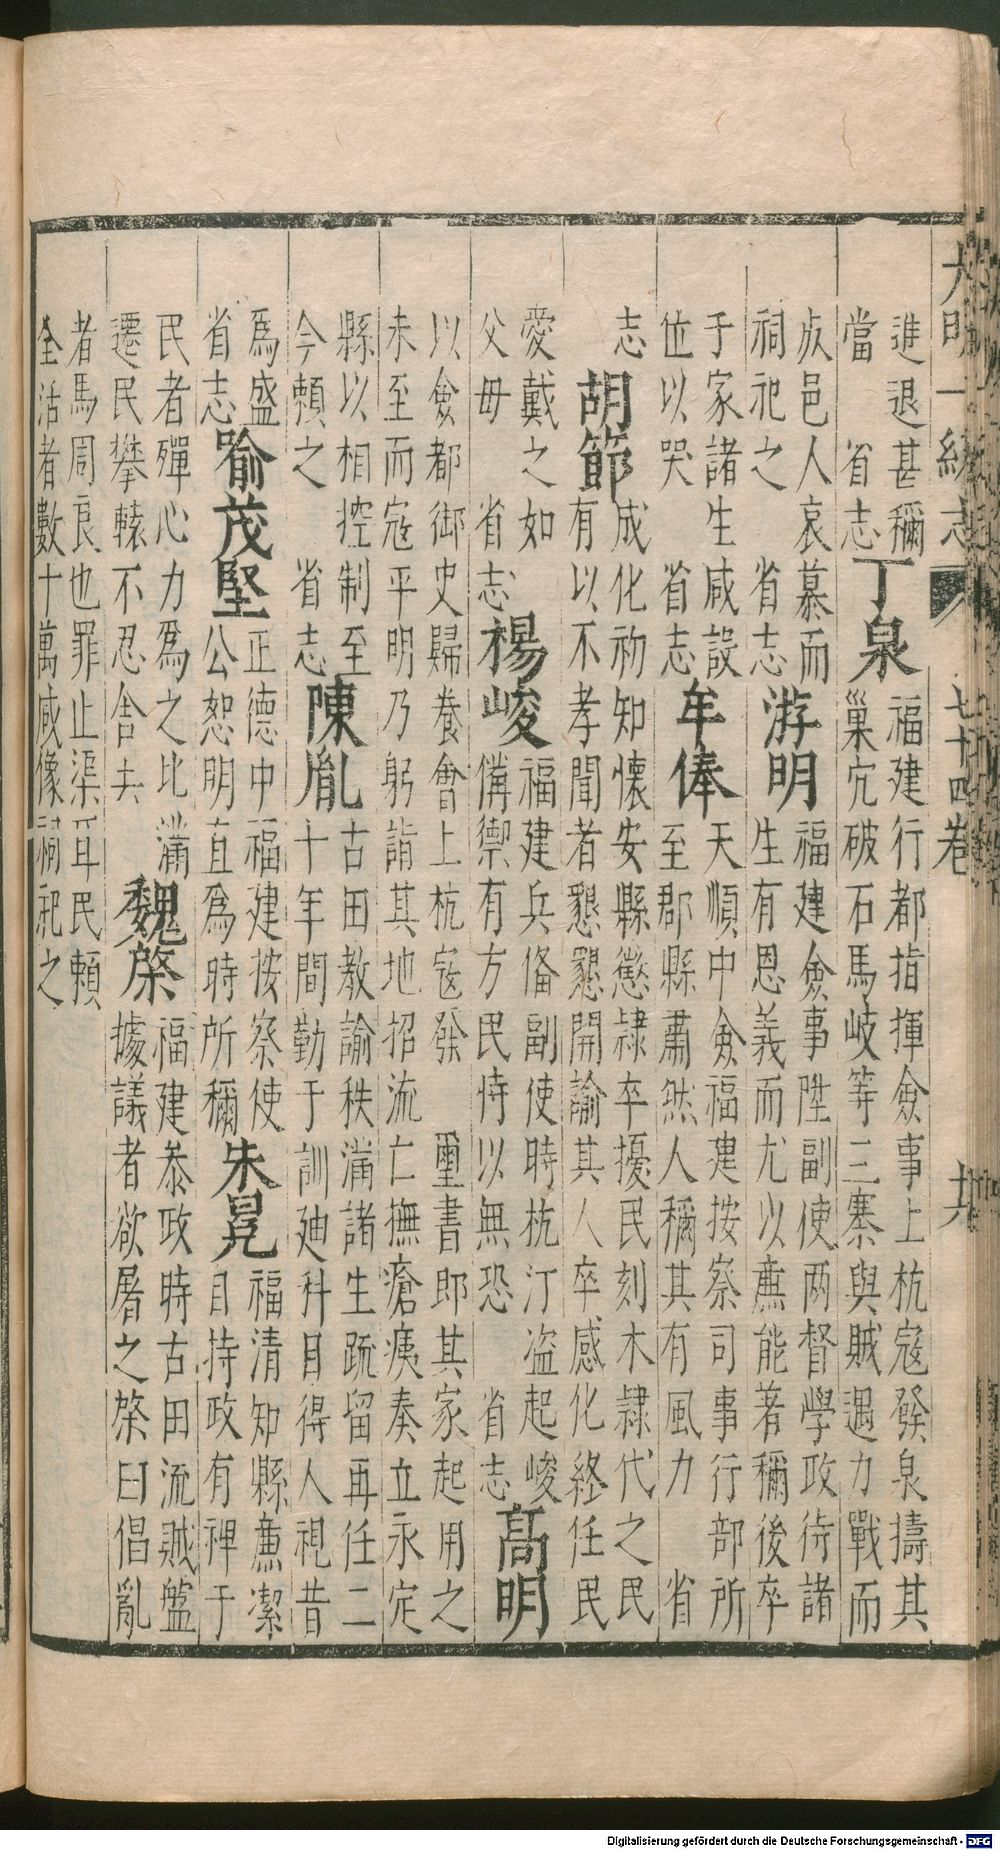 大明一統志 七十四卷 廿
進退甚稱
當 省志
丁泉
福建行都指揮僉事上杭寇發泉擣其
巢穴破石馬岐等三寨與賊遇力戰而
邑人哀慕而
祠祀之 省志
游明
福建僉事陞副使两督學政待諸
生有恩義而尤以廉能著稱後卒
于家諸生咸設
位以哭 省志
牟俸
天順中僉福建按察司事行部所
至郡縣肅然人稱其有風力 省
志
胡節
成化初知懷安縣懲隷卒擾民刻木隷代之民
有以不孝聞者懇懇開諭其人卒感化終任民
愛戴之如
父母 省志
楊峻
福建兵俻副使時杭汀盗起峻
偹禦有方民恃以無恐 省志
髙明
以僉都御史歸養會上杭寇發 璽書即其家起用之
未至而寇平明乃躬詣其地招流亡撫瘡痍奏立永定
縣以相控制至
今賴之 省志
陳胤
古田教諭秩滿諸生䟽留再任二
十年間勤于訓廸科目得人視昔
爲盛
省志
喻茂堅
正德中福建按察使
公恕明直爲時所稱
朱晃
福清知縣廉潔
自持政有裨于
民者殫心力爲之比滿
遷民攀轅不忍舍去
魏棨
福建叅政時古田流賊盤
據議者欲屠之棨曰倡亂
者馬周良也罪止渠耳民賴
全活者數十萬咸像祠祀之
Digitalisierung gefördert durch die Deutsche Forschungsgemeinschaft - DFG